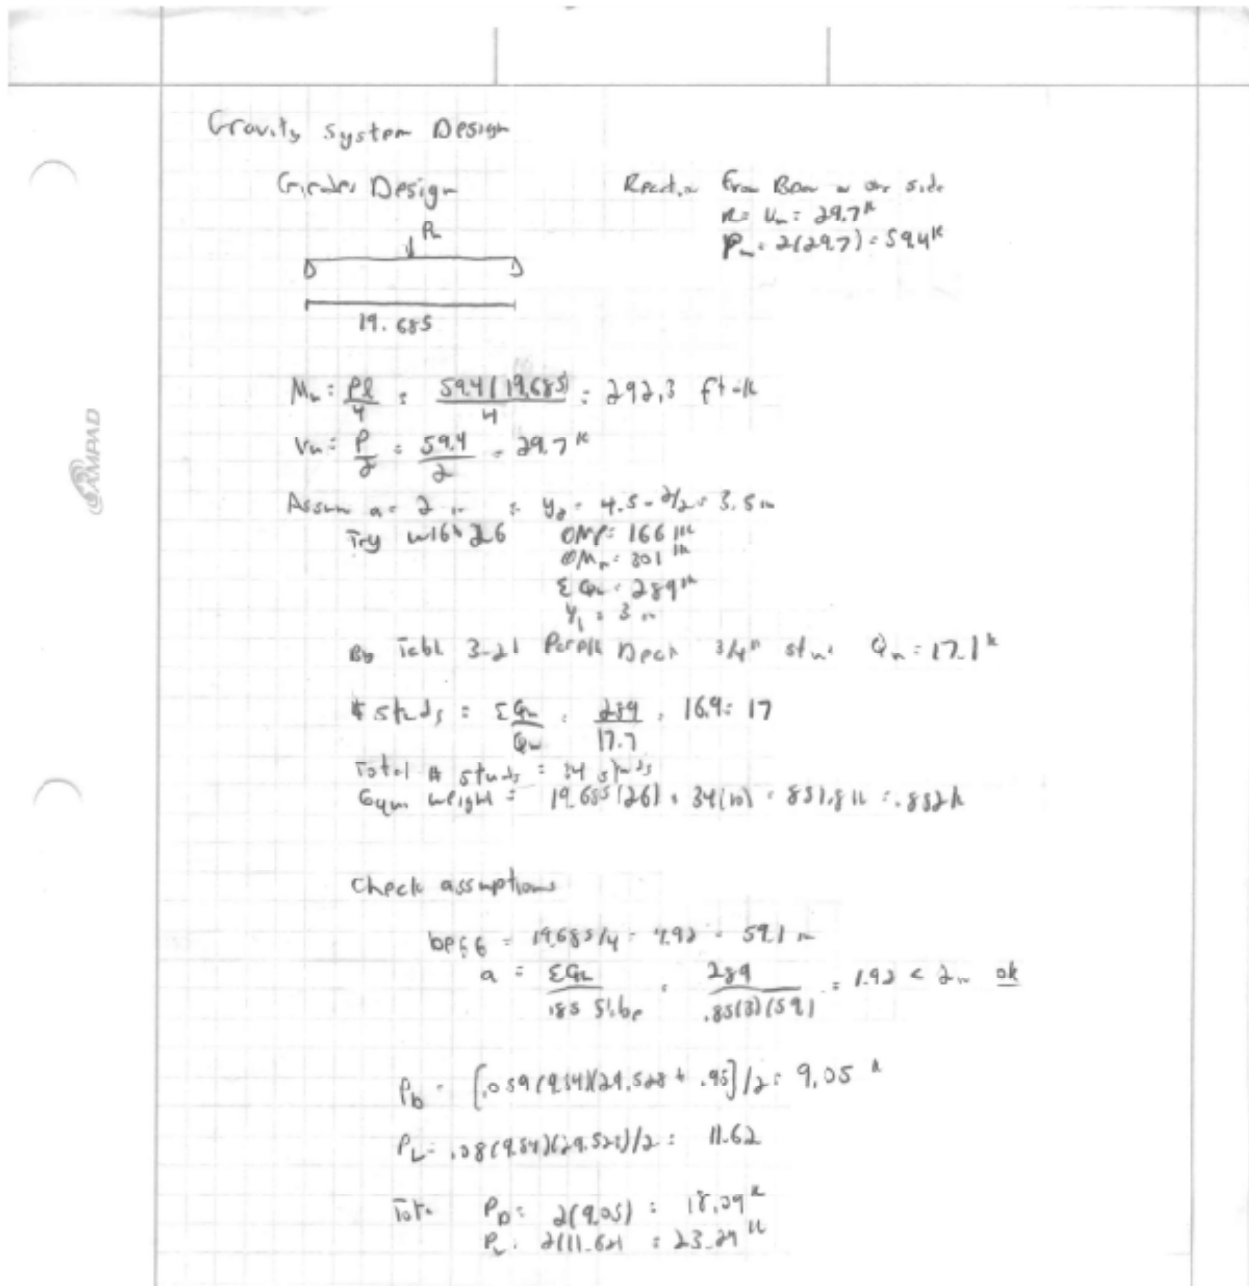 Gravity System Design
Girder Design
Reaction from Beam on one side
R = Vu = 29.7k
Pu = 2(29.7) = 59.4k
Pu
19.685
Mu = Pl/4 = 59.4(19.685)/4 = 292.3 ft-k
Vu = P/2 = 59.4/2 = 29.7k
AMPAD
Assum a = 2 in : y2 = 4.5 - 2/2 = 3.5 in
Try W16x26 ØMp = 166 1k
ØMn = 301 1k
ΣQn = 289k
Y1 = 3 in
By Tabl 3-21 Parall Deck 3/4" stud Qn = 17.1k
# studs = ΣQn/Qn = 289/17.1 = 16.9 = 17
Total # studs = 34 studs
weight = 19.685(26) + 34(10) = 851.8 lb = .852k
Check assumptions
beff = 19.685/4 = 4.92 = 59.1 in
a = ΣQn/.85 f'c be = 289/.85(3)(59.1) = 1.92 < 2in ok
PD = [.059(9.84)(29.528 + .95]/2 = 9.05 k
PL = .08(9.84)(29.528)/2 = 11.62
Tot. PD = 2(9.05) = 18.09k
PL = 2(11.62) = 23.24k